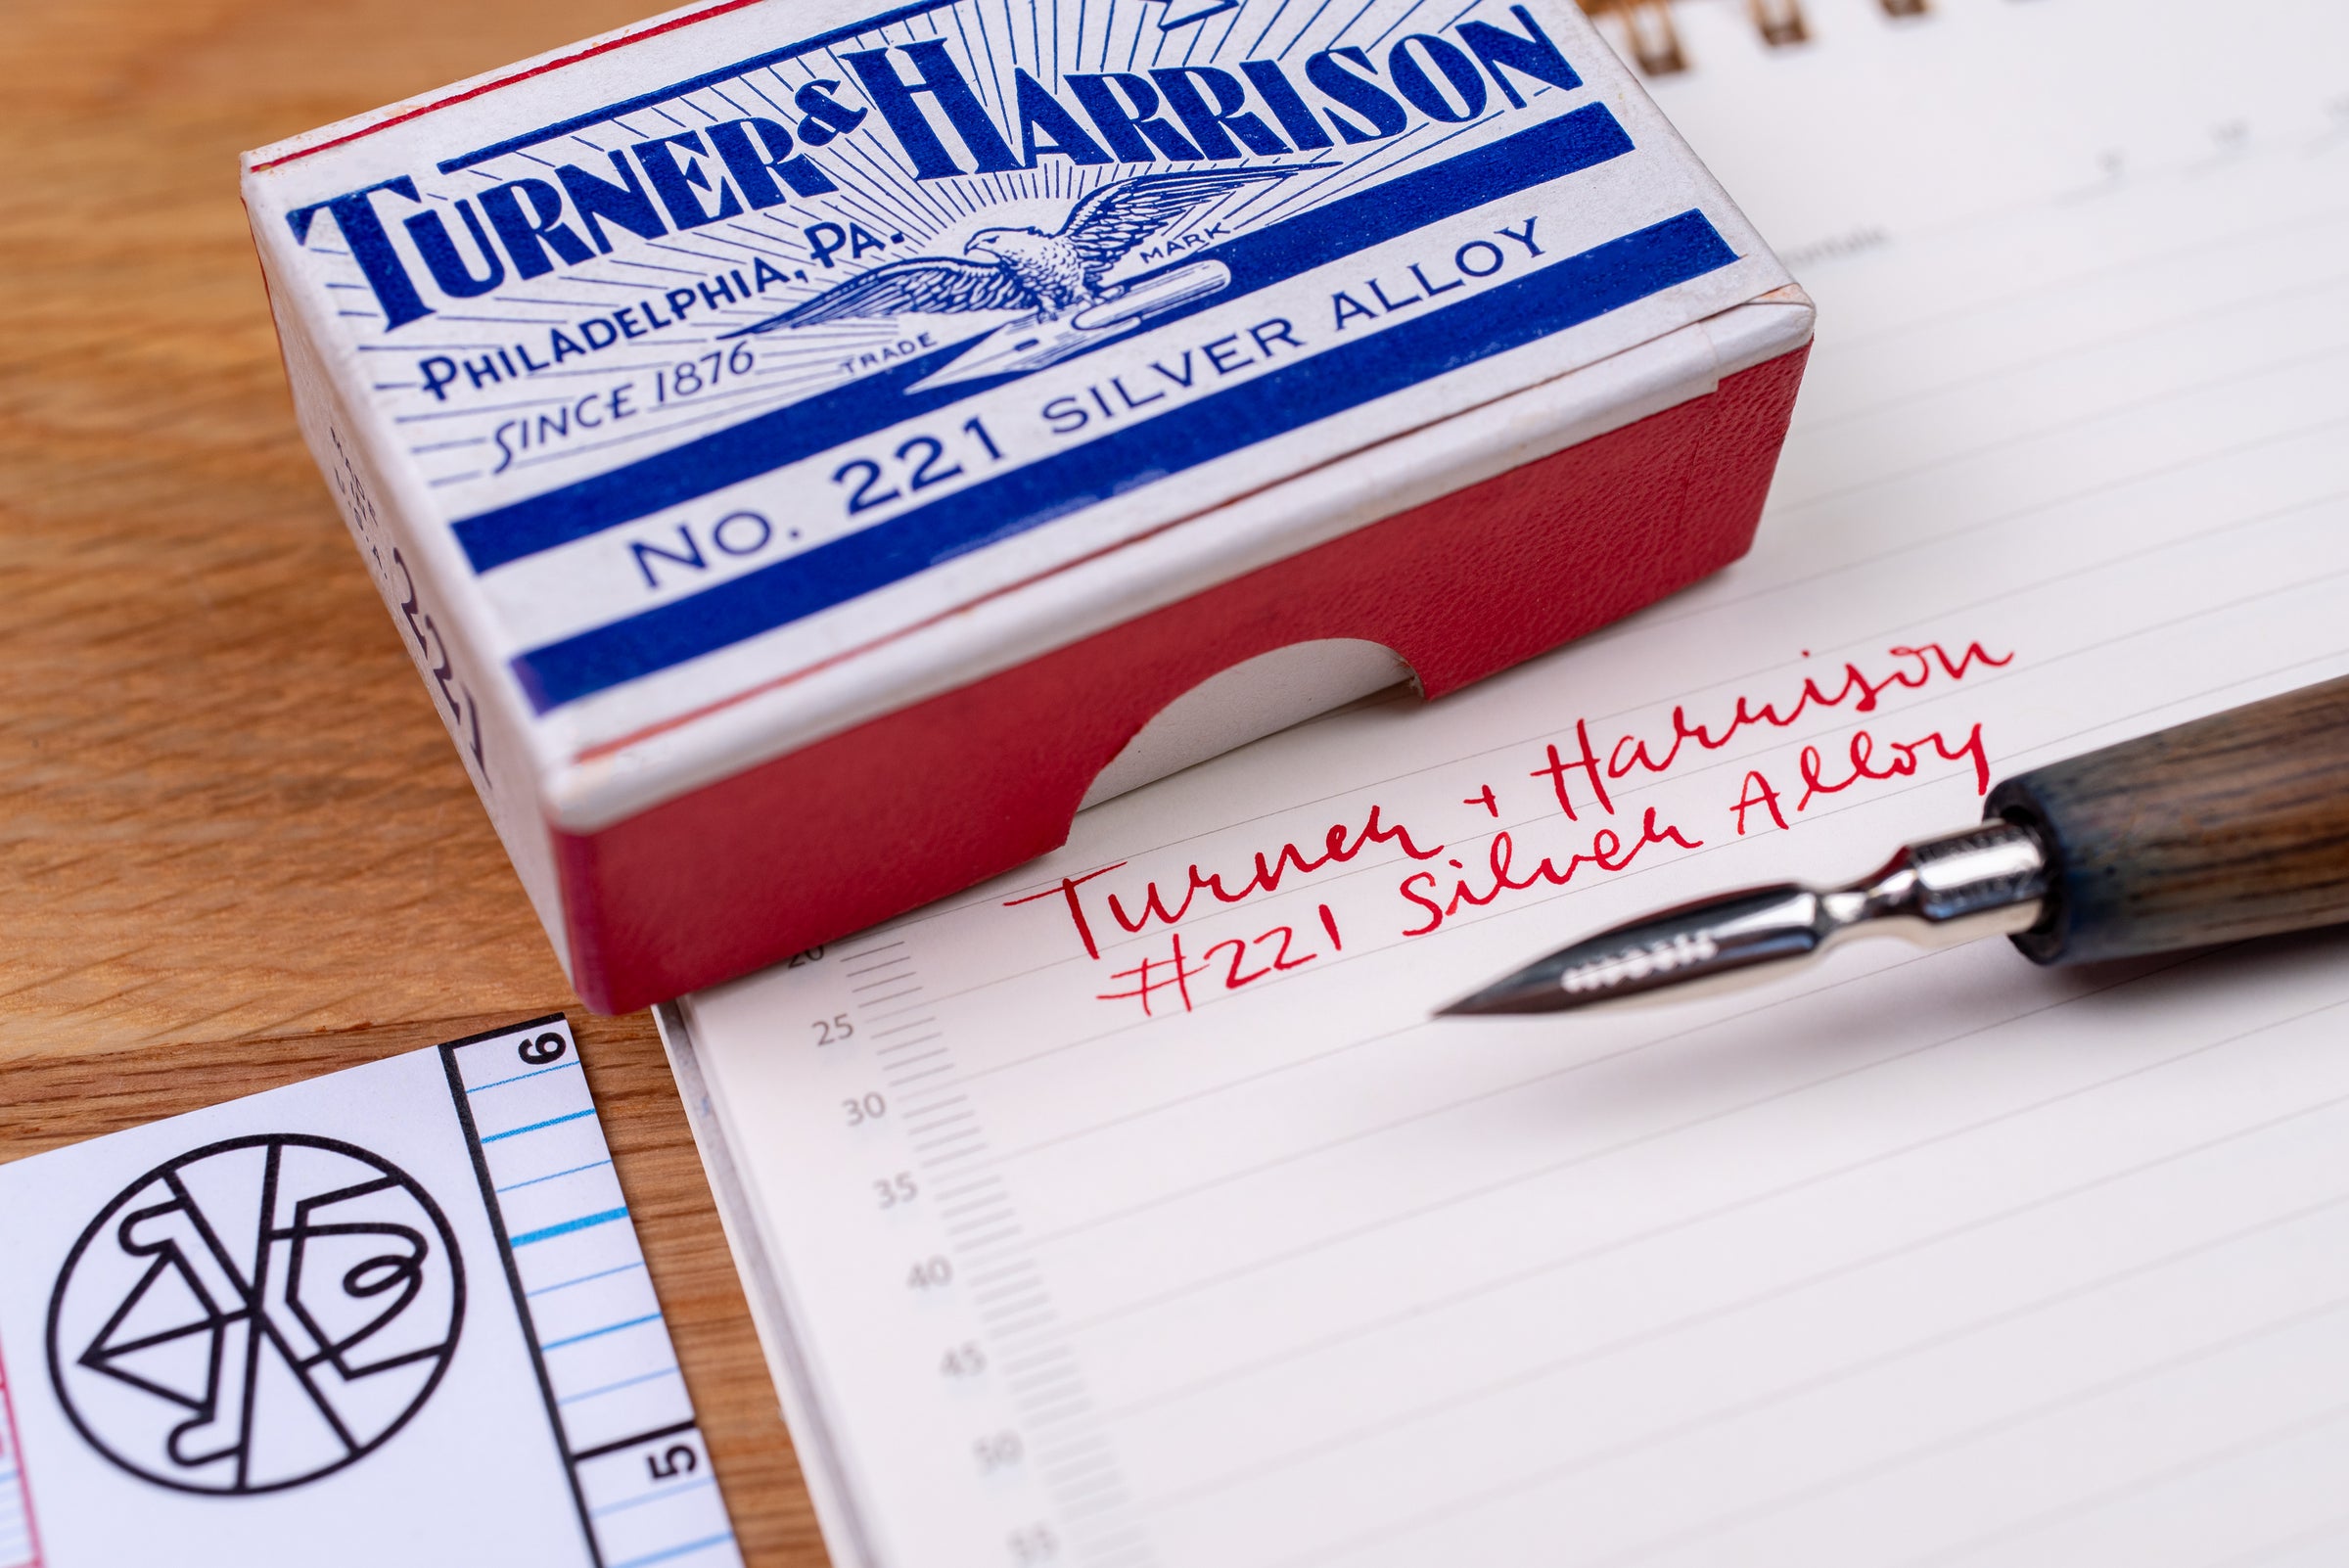 TURNER & HARRISON
PHILADELPHIA, PA.
SINCE 1876
TRADE MARK
NO. 221 SILVER ALLOY
MADE
U.S.A.
221
Turner + Harrison
#221 Silver Alloy
20
25
30
35
40
45
50
55
6
5